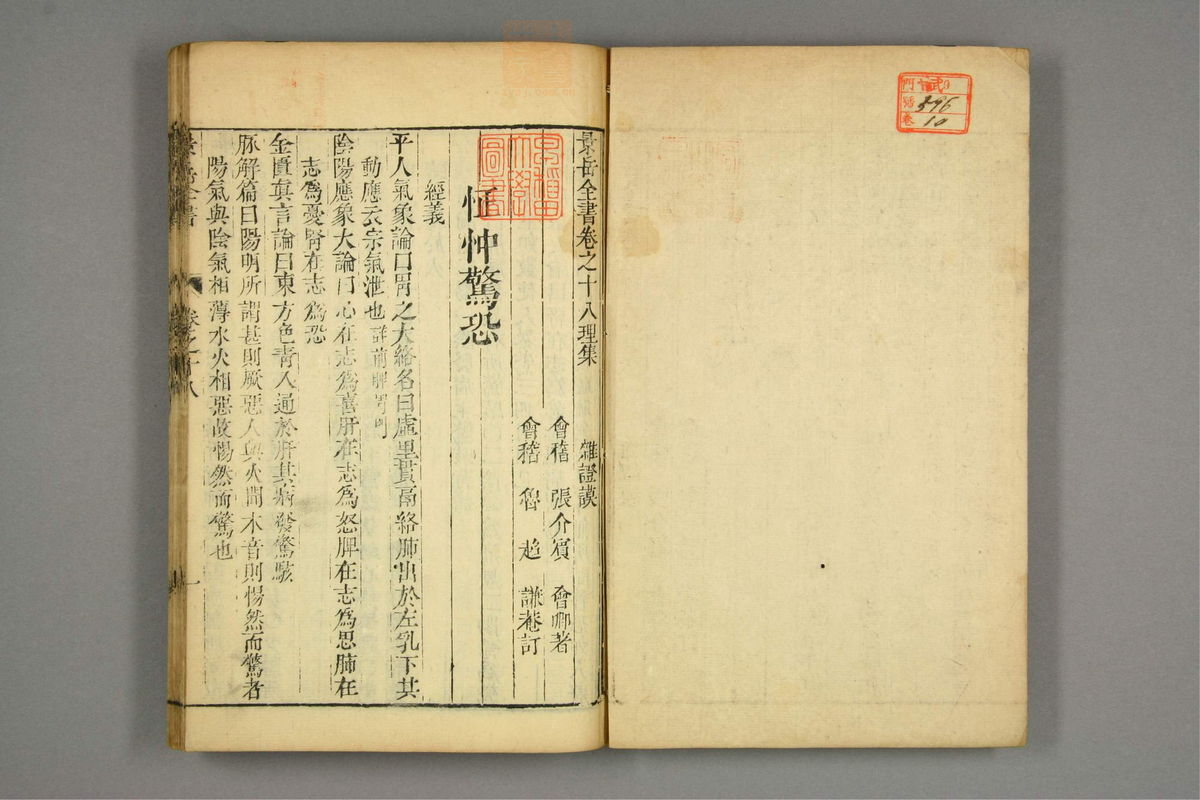 景岳全書卷之十八理集　雜證謨
會稽　張介賓　會卿著
會稽　魯超　謙菴訂
怔忡驚恐
經義
平人氣象論曰胃之大絡名曰虛里貫鬲絡肺出於左乳下其
動應衣宗氣泄也詳前脾胃門
陰陽應象大論曰心在志爲喜肝在志爲怒脾在志爲思肺在
志爲憂腎在志爲恐
金匱真言論曰東方色青入通於肝其病發驚駭
脉解篇曰陽明所謂甚則厥惡人與火聞木音則惕然而驚者
陽氣與陰氣相薄水火相惡故惕然而驚也
景岳全書　卷之十八　一
早稻田大學圖書
門
號 596
卷 10